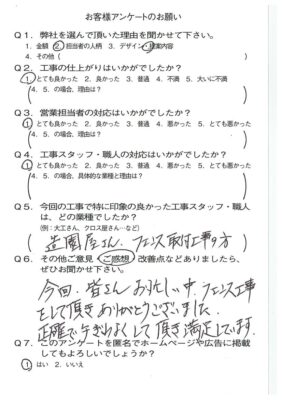 お客様アンケートのお願い
Q1. 弊社を選んで頂いた理由を聞かせて下さい。
1. 金額 2. 担当者の人柄 3. デザイン 4. 提案内容
4. その他(
Q2. 工事の仕上がりはいかがでしたか?
1. とても良かった 2. 良かった 3. 普通 4. 不満 5. 大いに不満
4. 5. の場合、理由は?
Q3. 営業担当者の対応はいかがでしたか?
1. とても良かった 2. 良かった 3. 普通 4. 悪かった 5. とても悪かった
4. 5. の場合、理由は?
Q4. 工事スタッフ・職人の対応はいかがでしたか?
1. とても良かった 2. 良かった 3. 普通 4. 悪かった 5. とても悪かった
4. 5. の場合、具体的な業種と理由は?
Q5. 今回の工事で特に印象の良かった工事スタッフ・職人
は、どの業種でしたか?
(例:大工さん、クロス屋さん…など)
造園屋さん、フェンス取付工事の方
Q6. その他ご意見・ご感想・改善点などありましたら、
ぜひお聞かせ下さい。
今回、皆さんお忙しい中、フェンス工事
をして頂きありがとうございました。
正確で手ぎわよくして頂き満足しています。
Q7. このアンケートを匿名でホームページや広告に掲載
してもよろしいでしょうか?
1. はい 2. いいえ